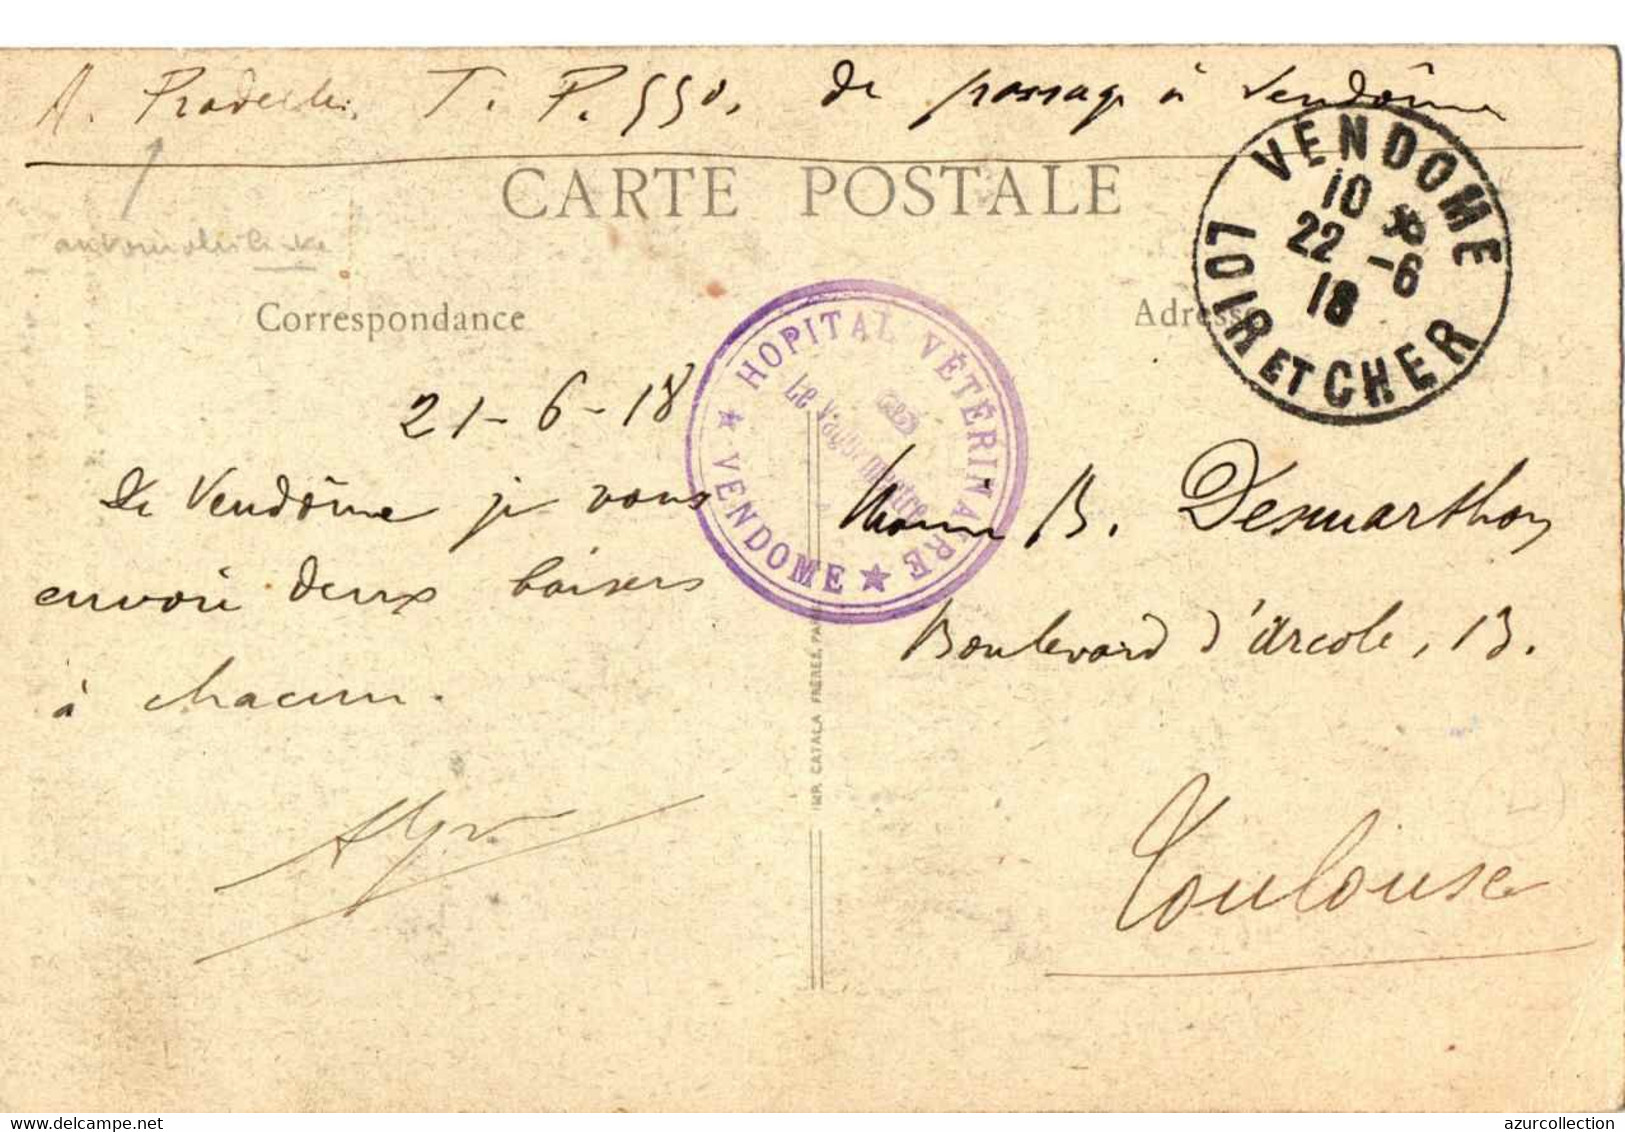 A. Pradelle. T. P. 550, de passage à Vendôme
CARTE POSTALE
automobiliste
Correspondance
Adresse
VENDOME
10
22 -6
18
LOIR ET CHER
HOPITAL VÉTÉRINAIRE
Le Vaguemestre
★ VENDOME ★
21-6-18
De Vendôme je vous
envoie deux baisers
à chacun.
B. Desmarthon
Boulevard d'Arcole, 13.
Toulouse
IMP. CATALA FRÈRES, PARIS
azurcollection